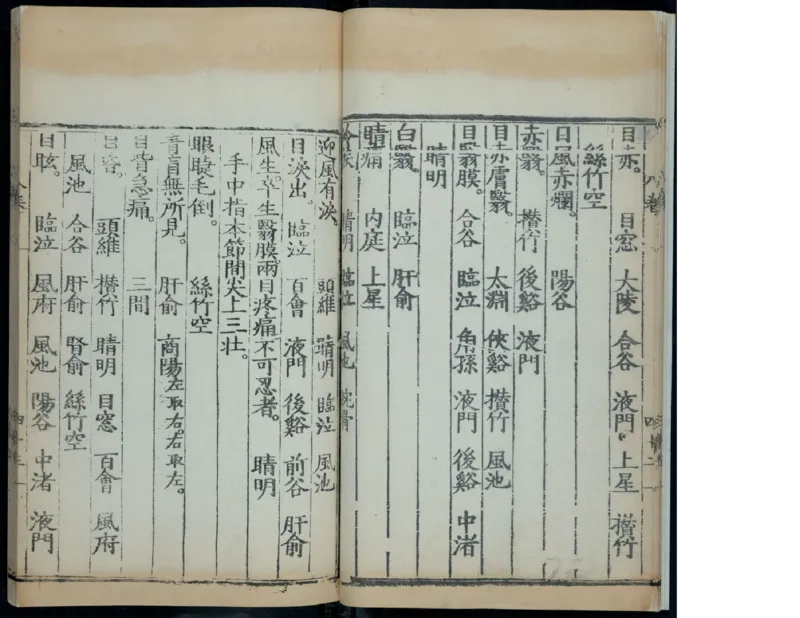 目赤。 目窓 大陵 合谷 液門 上星 攅竹
絲竹空
目風赤爛。 陽谷
赤翳。 攅竹 後谿 液門
目赤膚翳。 太淵 俠谿 攅竹 風池
目翳膜。 合谷 臨泣 角孫 液門 後谿 中渚
睛明
白翳。 臨泣 肝俞
睛痛 内庭 上星
冷淚 睛明 臨泣 風池 腕骨
迎風有淚。 頭維 睛明 臨泣 風池
目淚出。 臨泣 百會 液門 後谿 前谷 肝俞
風生卒生翳膜兩目疼痛不可忍者。 睛明
手中指本節間尖上三壯。
眼睫毛倒。 絲竹空
青盲無所見。 肝俞 商陽左取右。右取左。
目眥急痛。 三間
目昏。 頭維 攅竹 睛明 目窓 百會 風府
風池 合谷 肝俞 腎俞 絲竹空
目眩。 臨泣 風府 風池 陽谷 中渚 液門